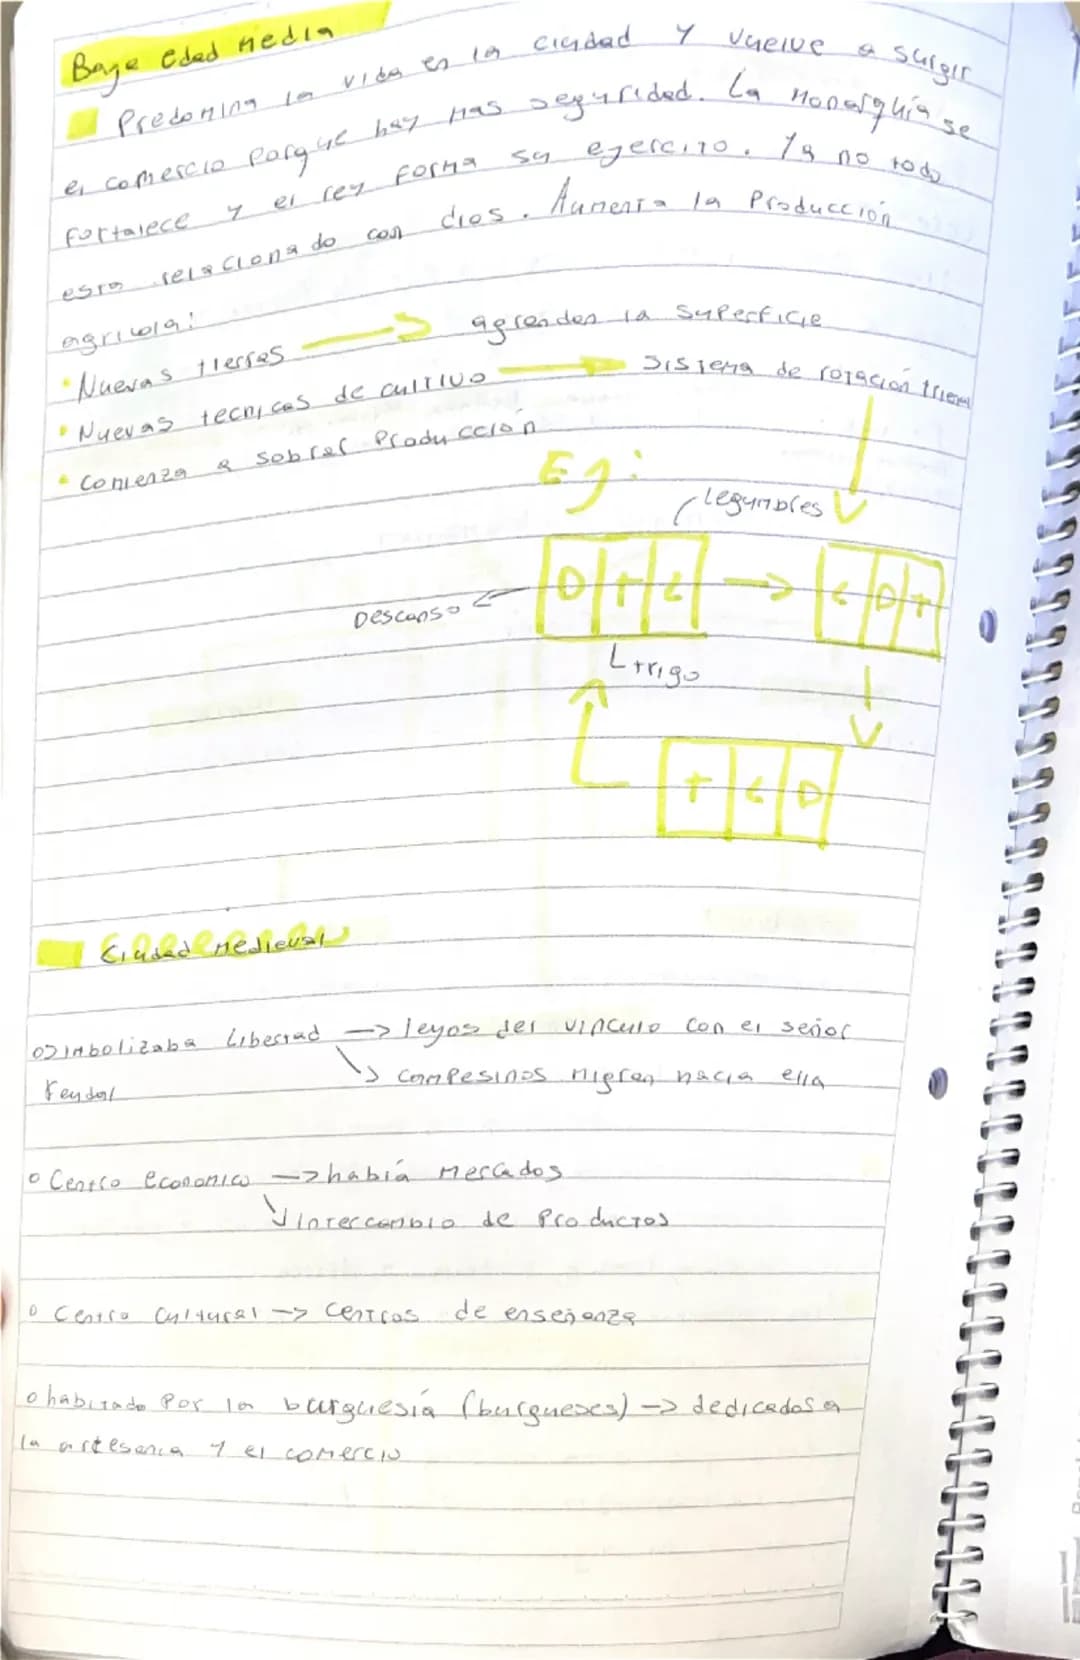 Baja edad media
Predomina la vida en la ciudad y vuelve a surgir
el comercio porque hay mas seguridad. La monarquía se
fortalece y el rey forma su ejercito. Ya no todo
esta relacionado con dios. Aumenta la Producción
agricola:
• Nuevas tierras → agrandan la superficie
• Nuevas tecnicas de cultivo → Sistema de rotación trienal
• Comienza a sobrar Producción
Ej:
Legumbres
D T L → L D T
Descanso
trigo
T L D
Ciudad medieval
o Simbolizaba libertad → leyos del vinculo con el señor
↘ campesinos migran hacia ella
feudal
o Centro economico → había mercados
↘ intercambio de Productos
o Centro Cultural → centros de enseñanza
o habitado Por la burguesía (burgueses) → dedicados a
la artesania y el comercio